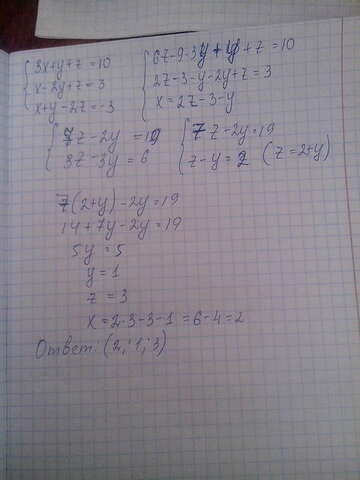 3x+y+z=10
x-2y+z=3
x+y-2z=-3
6z-9-3y+y+z=10
2z-3-y-2y+z=3
x=2z-3-y
7z-2y=19
3z-3y=6
7z-2y=19
z-y=2 (z=2+y)
7(2+y)-2y=19
14+7y-2y=19
5y=5
y=1
z=3
x=2·3-3-1=6-4=2
Ответ: (2; 1; 3)